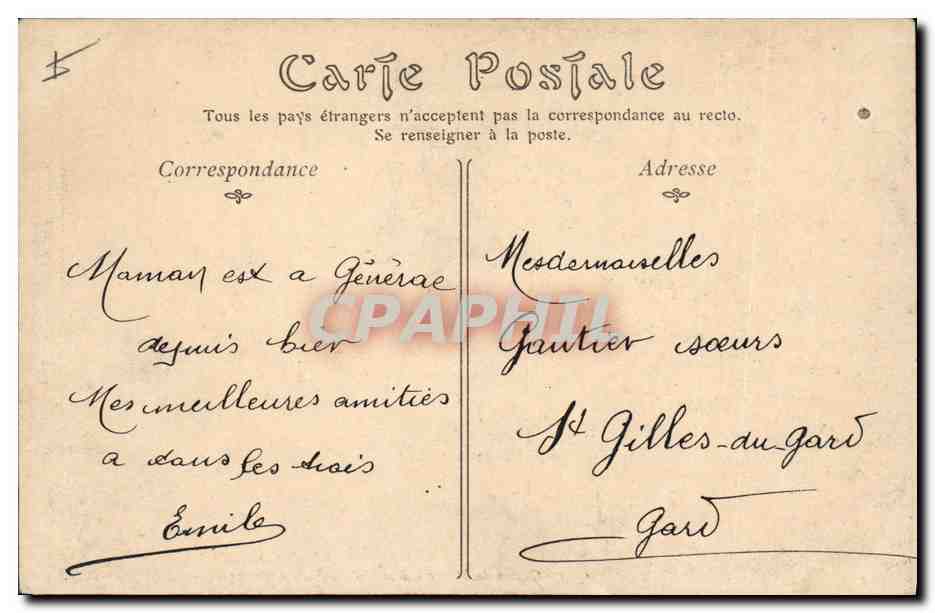 Carte Postale
Tous les pays étrangers n'acceptent pas la correspondance au recto.
Se renseigner à la poste.
Correspondance
Maman est a Générac
depuis hier
Mes meilleures amitiés
a tous les trois
Emile
Adresse
Mesdemoiselles
Gautier sœurs
St Gilles-du-Gard
Gard
CPAPHIL